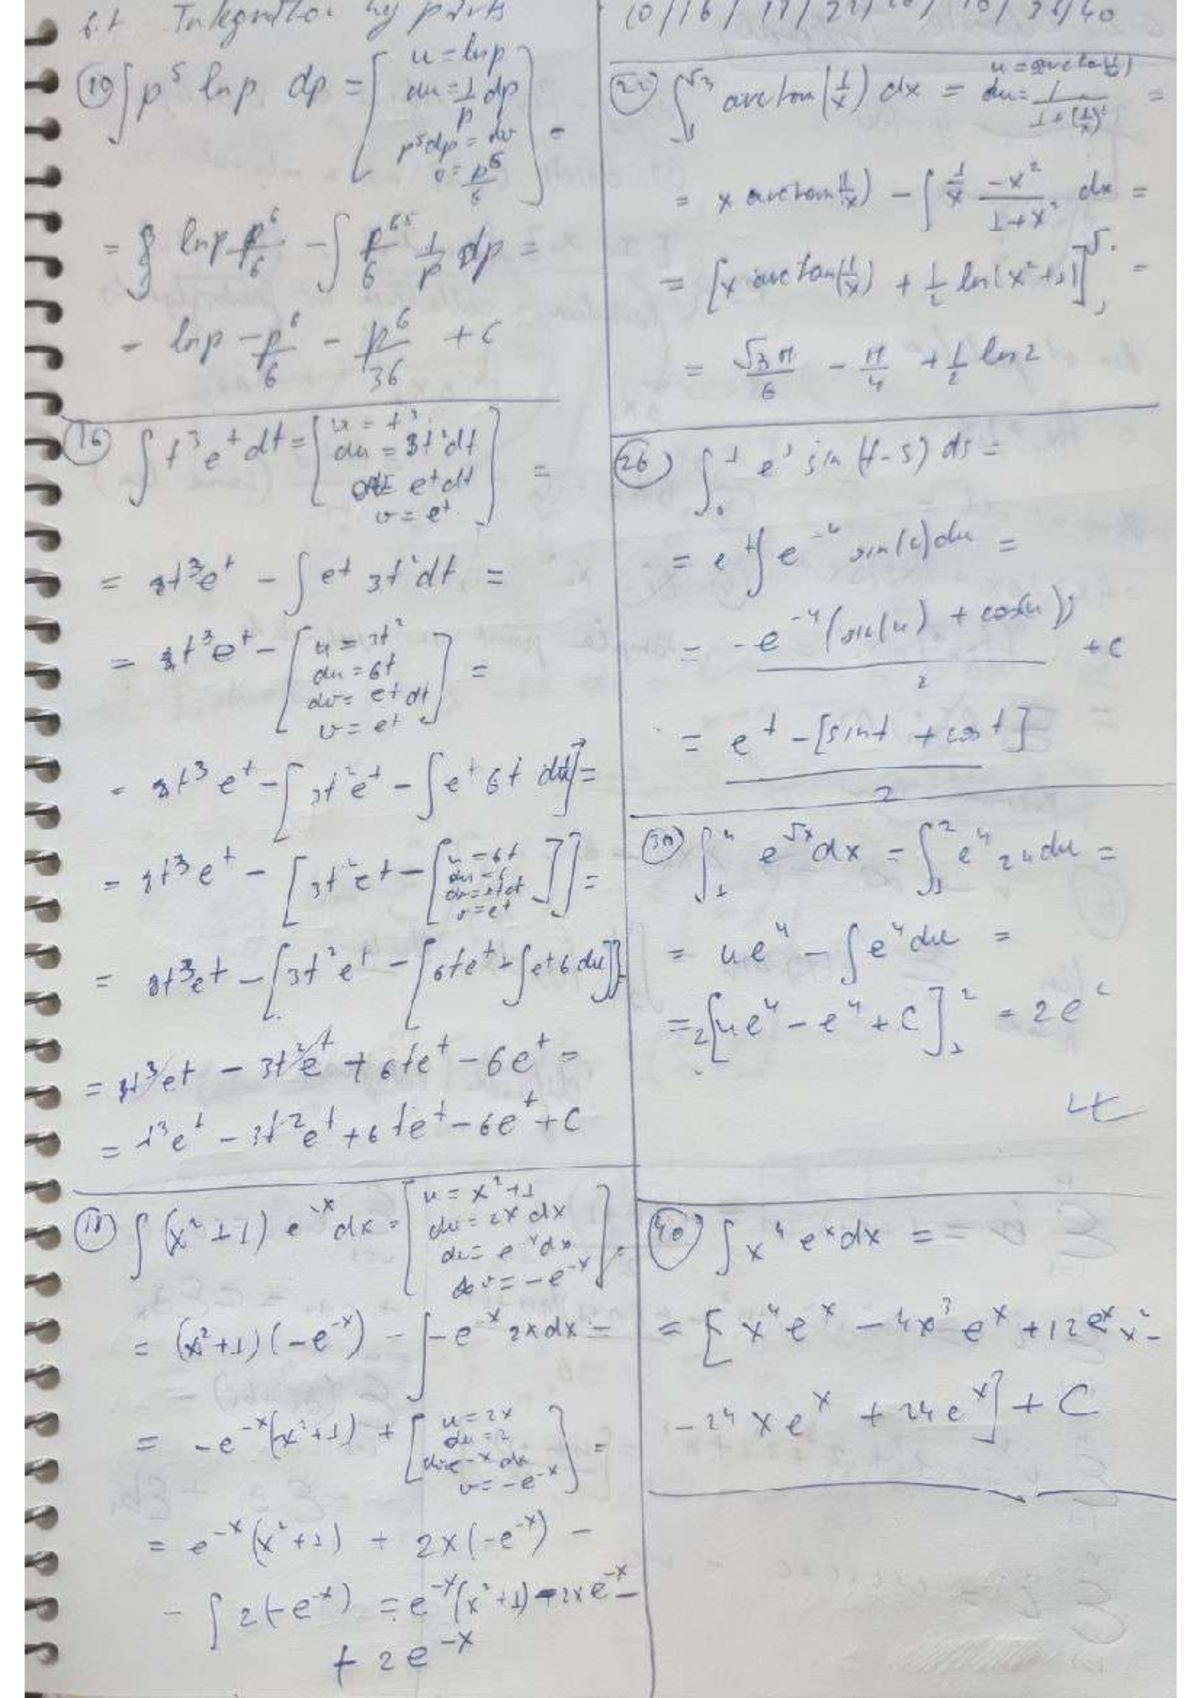 6.1 Integration by parts
10/16/18/22/26/30/36/40
(10) ∫ p⁵ ln p dp = [ u = ln p
du = 1/p dp
p⁵dp = dv
v = p⁶/6 ] =
= ln p p⁶/6 − ∫ p⁶⁵/6 1/p dp =
= ln p p⁶/6 − p⁶/36 + C
(16) ∫ t³ eᵗ dt = [ u = t³
du = 3t²dt
dv = eᵗdt
v = eᵗ ] =
= t³eᵗ − ∫ eᵗ 3t²dt =
= t³eᵗ − [ u = 3t²
du = 6t
dv = eᵗ dt
v = eᵗ ] =
= t³ eᵗ − [ 3t²eᵗ − ∫ eᵗ 6t dt ] =
= t³eᵗ − [ 3t²eᵗ − [ u = 6t
du = 6
dv = eᵗdt
v = eᵗ ] ] =
= t³eᵗ − [ 3t²eᵗ − [ 6teᵗ − ∫ eᵗ 6 du ] ]
= t³eᵗ − 3t²eᵗ + 6teᵗ − 6eᵗ =
= t³eᵗ − 3t²eᵗ + 6teᵗ − 6eᵗ + C
(18) ∫ (x²+1) e⁻ˣdx = [ u = x²+1
du = 2x dx
dv = e⁻ˣdx
v = −e⁻ˣ ] =
= (x²+1)(−e⁻ˣ) − ∫ −e⁻ˣ 2x dx =
= −e⁻ˣ(x²+1) + [ u = 2x
du = 2
dv = e⁻ˣ dx
v = −e⁻ˣ ] =
= e⁻ˣ(x²+1) + 2x(−e⁻ˣ) −
− ∫ 2(−e⁻ˣ) = e⁻ˣ(x²+1) − 2xe⁻ˣ −
+ 2e⁻ˣ
(22) ∫₁^√3 arctan(1/x) dx = u = arctan(1/x)
du = 1/(1+(1/x)²) =
= x arctan(1/x) − ∫ 1/x −x²/(1+x²) dx =
= [x arctan(1/x) + 1/2 ln(x²+1)]₁^√3 =
= √3π/6 − π/4 + 1/2 ln2
(26) ∫₀ᵗ eˢ sin(t−s) ds =
= eᵗ∫ e⁻ᵘ sin(u)du =
= −e⁻ᵘ(sin(u) + cos(u))/2 + C
= eᵗ − [sint + cost]/2
(30) ∫₁⁴ e^√x dx = ∫₁² eᵘ 2u du =
= ueᵘ − ∫ eᵘdu =
= 2[ueᵘ − eᵘ + C]₁² = 2e²
(40) ∫ x⁴ eˣdx =
= [ x⁴eˣ − 4x³eˣ + 12eˣx² −
− 24xeˣ + 24eˣ] + C